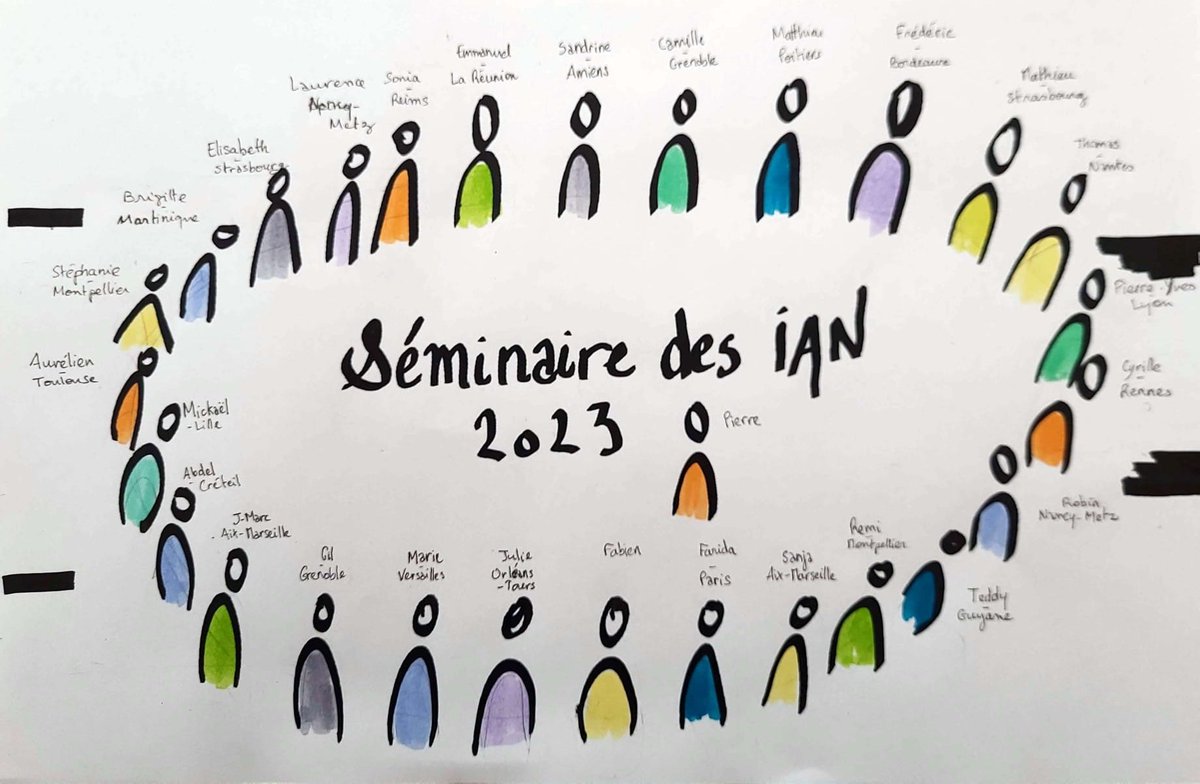 Emmanuel
-
La Réunion
Sandrine
-
Amiens
Camille
-
Grenoble
Matthieu
-
Poitiers
Frédéric
-
Bordeaux
Mathieu
-
Strasbourg
Thomas
-
Nantes
Pierre-Yves
Lyon
Cyrille
-
Rennes
Robin
Nancy-Metz
Teddy
-
Guyane
Remi
-
Montpellier
Sanja
Aix-Marseille
Farida
-
Paris
Fabien
Julie
Orléans
-Tours
Marie
-
Versailles
Gil
-
Grenoble
J-Marc
Aix-Marseille
Abdel
-Créteil
Mickaël
-Lille
Aurélien
-
Toulouse
Stéphanie
-
Montpellier
Brigitte
-
Martinique
Elisabeth
-
Strasbourg
Laurence
Nancy-
Metz
Sonia
-
Reims
Séminaire des IAN
2023
Pierre